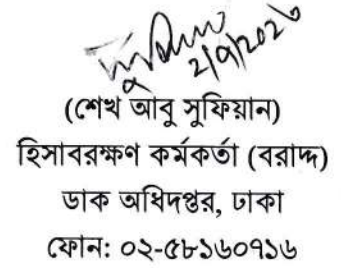 ২/৭/২০২৬
(শেখ আবু সুফিয়ান)
হিসাবরক্ষণ কর্মকর্তা (বরাদ্দ)
ডাক অধিদপ্তর, ঢাকা
ফোন: ০২-৫৮১৬০৭১৬